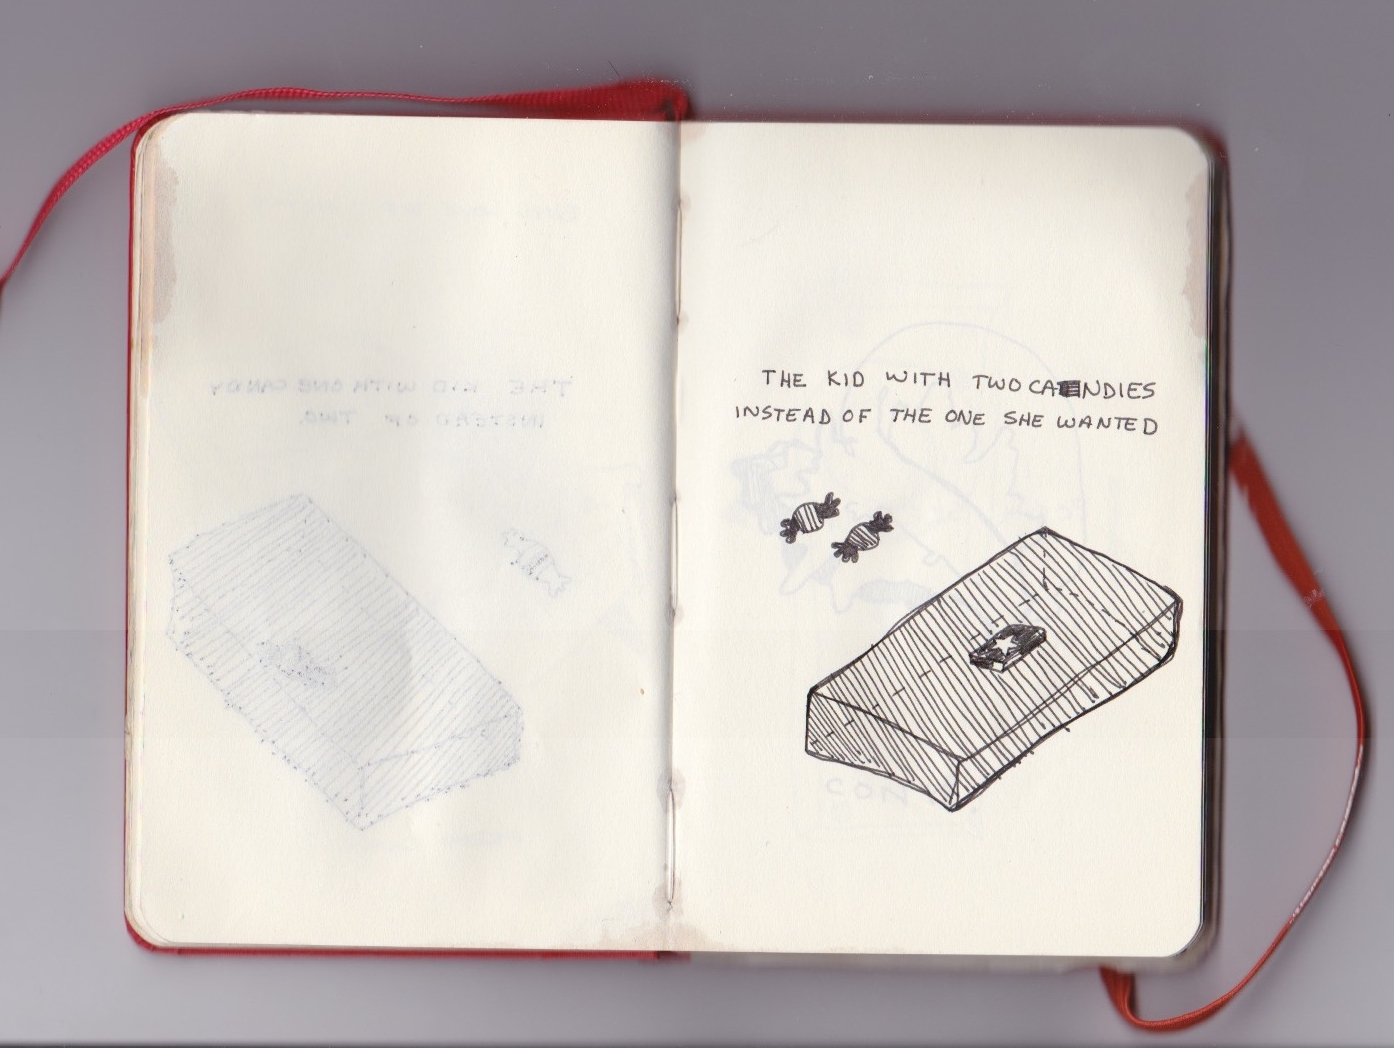 THE KID WITH ONE CANDY
INSTEAD OF TWO.
THE KID WITH TWO CANDIES
INSTEAD OF THE ONE SHE WANTED
CON